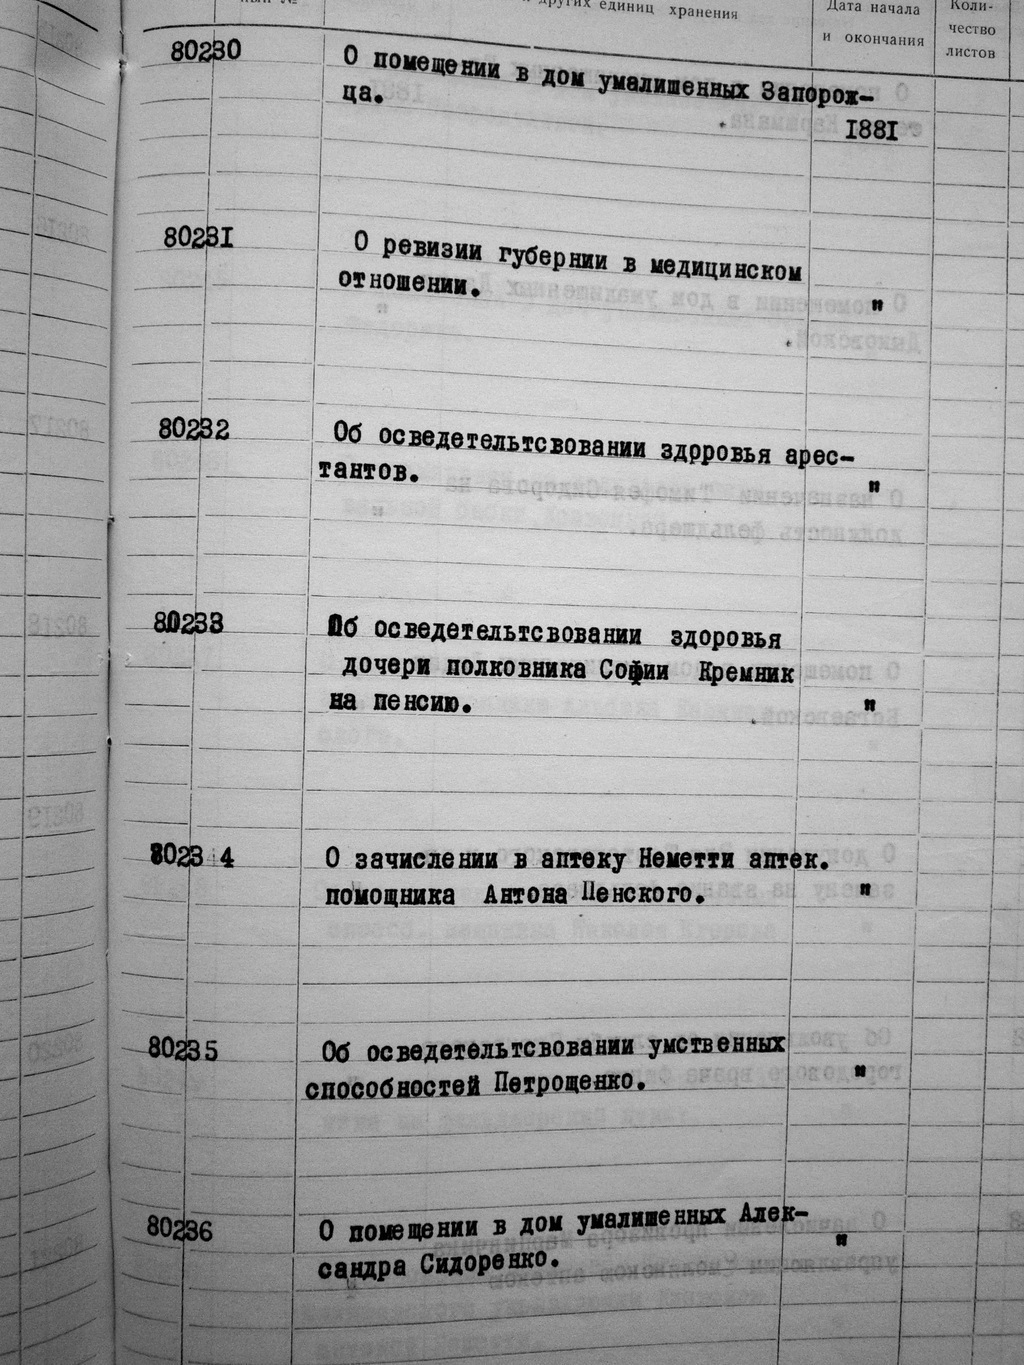 других единиц хранения
Дата начала
и окончания
Коли-
чество
листов
80230
О помещении в дом умалишенных Запорож-
ца.
I88I
8023I
О ревизии губернии в медицинском
отношении.
"
80232
Об осведетельтсвовании здоровья арес-
тантов.
"
80233
Об осведетельтсвовании здоровья
дочери полковника Софии Кремник
на пенсию.
"
80234
О зачислении в аптеку Неметти аптек.
помощника Антона Пенского.
"
80235
Об осведетельтсвовании умственных
способностей Петрощенко.
"
80236
О помещении в дом умалишенных Алек-
сандра Сидоренко.
"